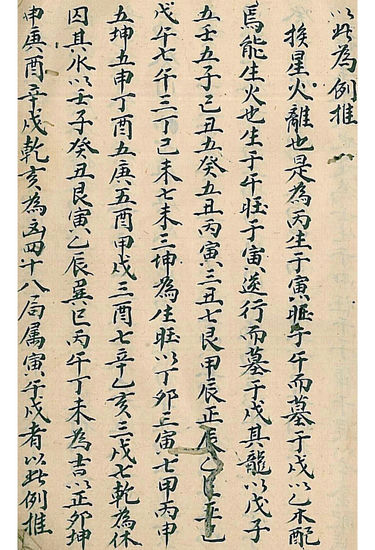 以此為例推
挨星火離也是為丙生于寅旺于午而墓于戌以乙木配
焉能生火也生于午旺于寅逆行而墓于戌其龍以戊子
五壬五子己丑五癸五丑丙寅三丑七艮甲辰正辰
戊午七午三丁己未七未三坤為生旺以丁卯三寅七甲丙申
五坤五申丁酉五庚五酉甲戌三酉七辛乙亥三戌七乾為休
囚其水以壬子癸丑艮寅乙辰巽巳丙午丁未為吉以正卯坤
申庚酉辛戌乾亥為凶四十八局属寅午戌者以此例推